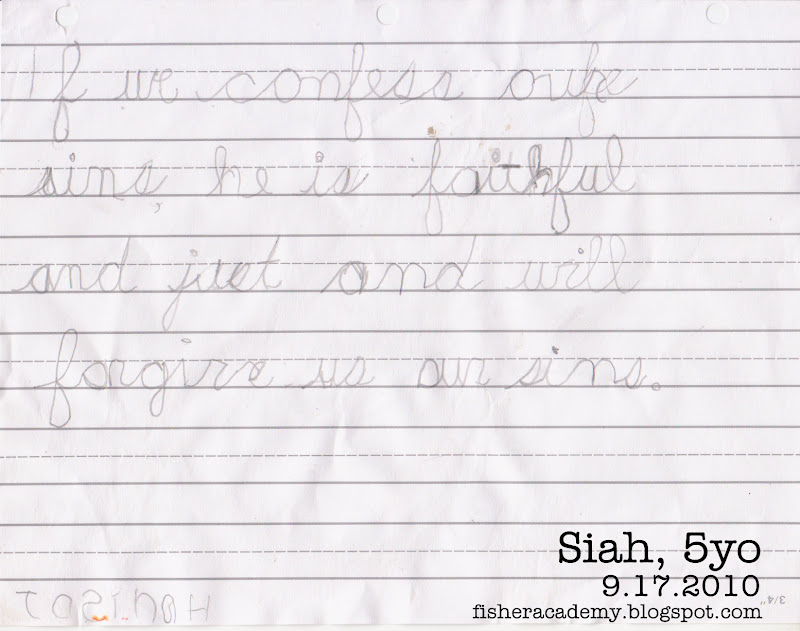 If we confess
sins, he is faithful
and just and will
forgive us our sins.
Siah, 5yo
9.17.2010
fisheracademy.blogspot.com
3/4"